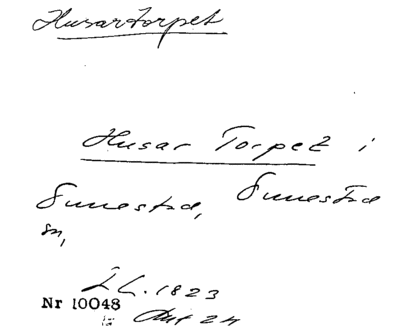 Husartorpet
Husar Torpet i
Sunestad, Sunestad
sn,
1823
Nr 10048